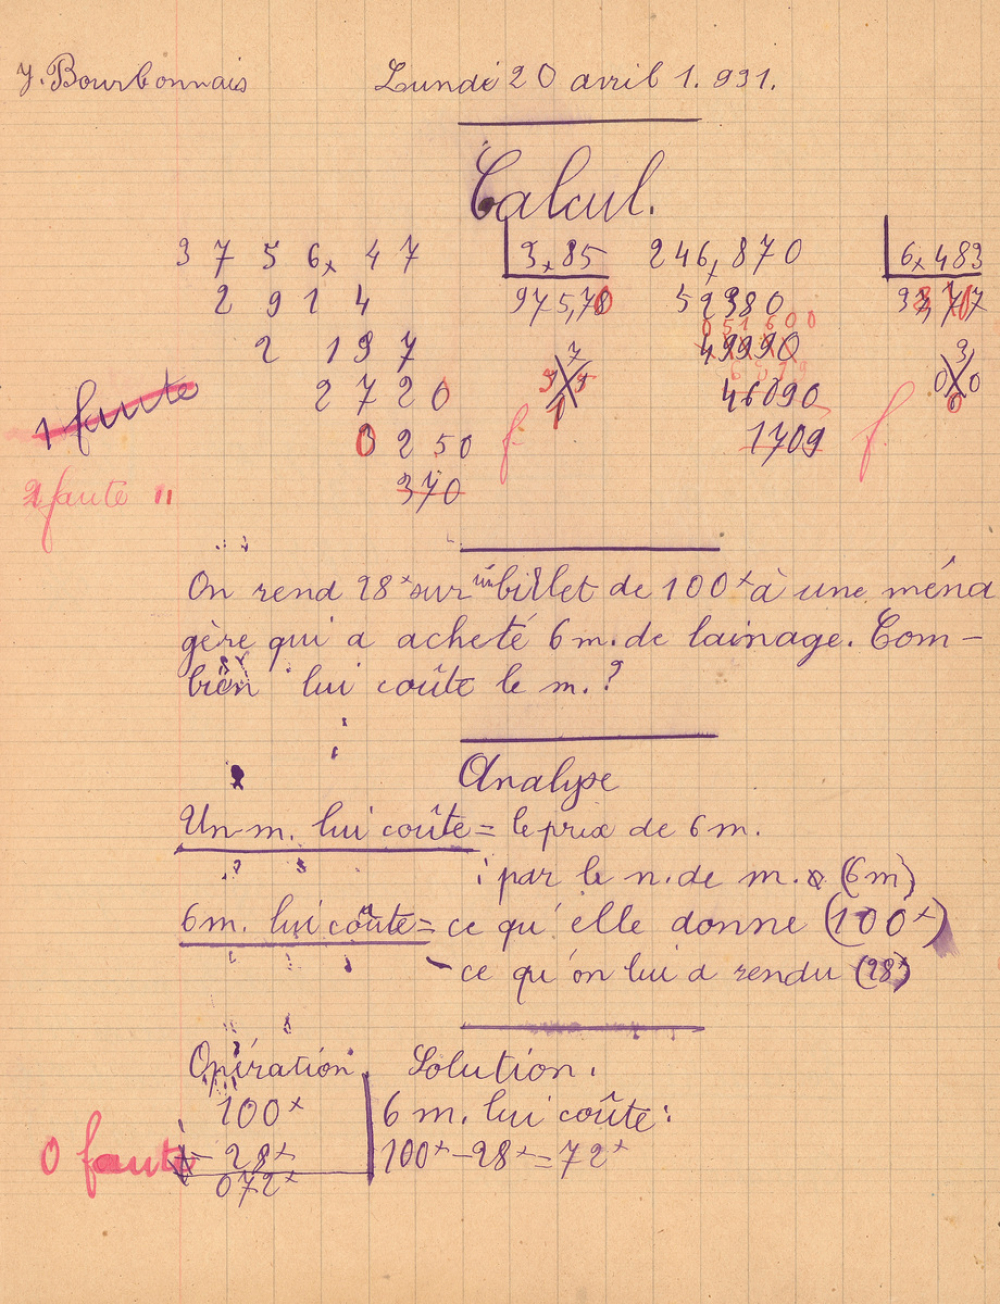 Y. Bourbonnais Lundi 20 avril 1.931.
Calcul.
3756,47 3,85 246,870 6,483
2914 975,70 52380
2197 49990
2720 46090
0250 1709
370
1 faute
2 faute
f. f
On rend 28f sur un billet de 100f à une ména
gère qui a acheté 6 m. de lainage. Com-
bien lui coûte le m. ?
Analyse
Un m. lui coûte = le prix de 6 m.
: par le n. de m. (6m)
6 m. lui coûte = ce qu'elle donne (100f)
- ce qu'on lui a rendu (28f)
Opération. Solution.
100f 6 m. lui coûte :
- 28f 100f - 28f = 72f
072f
0 faute